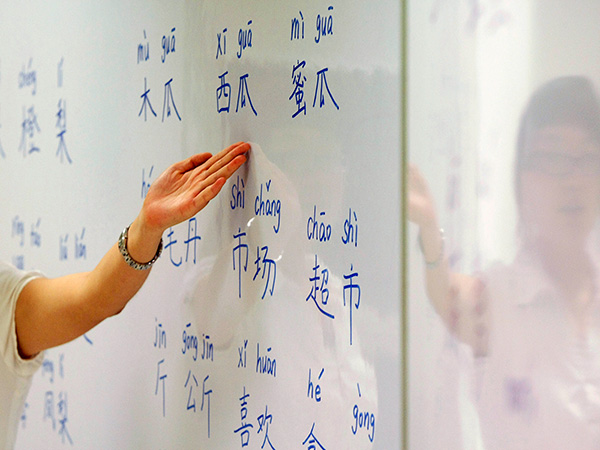 mù guā xī guā mì guā
木瓜 西瓜 蜜瓜
chéng lí
橙 梨
shì chǎng chāo shì
毛丹 市场 超市
jīn gōng jīn xǐ huān hé gòng
斤 公斤 喜欢
梨